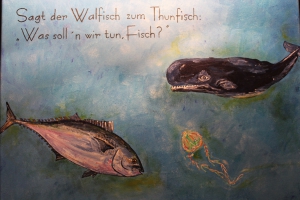 Sagt der Walfisch zum Thunfisch:
„Was soll'n wir tun, Fisch?"